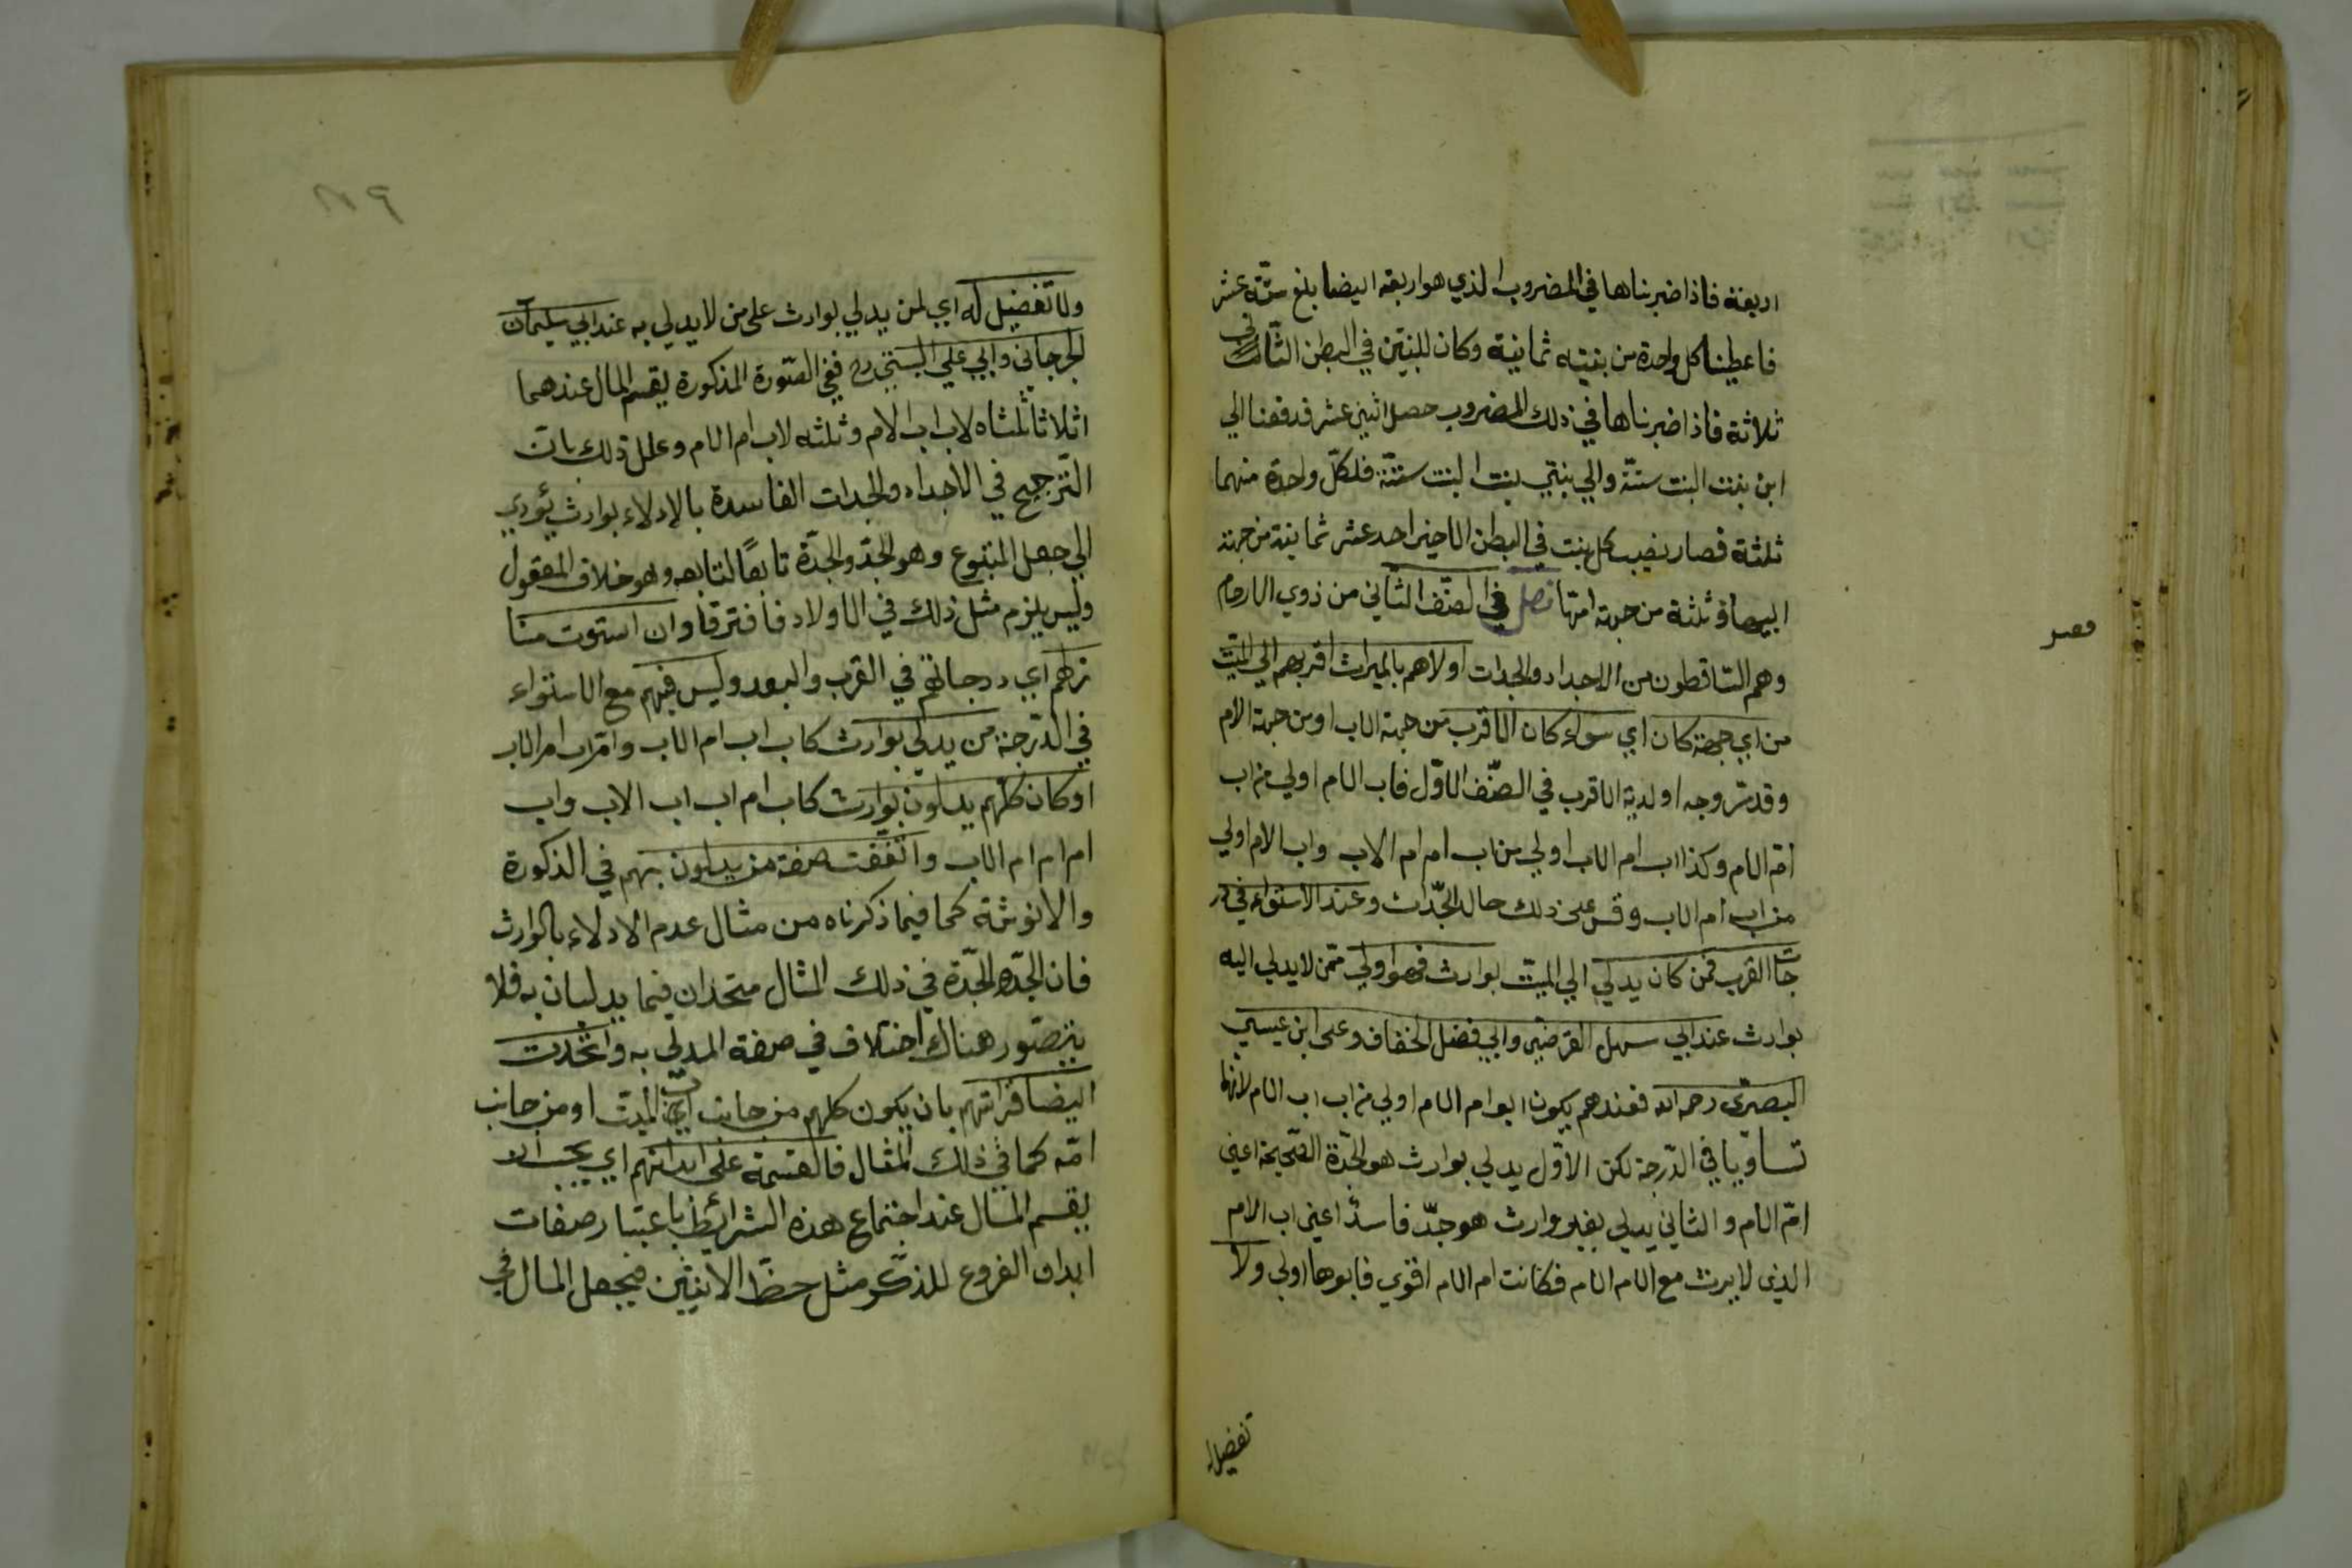 اربعة فاذا ضربناها في المضروب الذي هو اربعة ايضا بلغ ستة عشر
فاعطينا كل واحدة من بنتيه ثمانية وكان للبنتين في البطن الثاني
ثلاثة فاذا ضربناها في ذلك المضروب حصل اثني عشر فدفعنا الي
ابن بنت البنت ستة والي بنتي بنت البنت ستة فلكل واحدة منهما
ثلثة فصار نصيب كل بنت في البطن الاخير احد عشر ثمانية من جهة
ابيها وثلثة من جهة امها فصل في الصنف الثاني من ذوي الارحام
وهم الساقطون من الاجداد والجدات اولاهم بالميراث اقربهم الي الميت
من اي جهة كان اي سواء كان الاقرب من جهة الاب او من جهة الام
وقد مر وجه اولوية الاقرب في الصنف الاول فاب الام اولي من اب
ام الام وكذا اب ام الاب اولي من اب ام ام الاب واب الام اولي
من اب ام الاب وقس علي ذلك حال الجدات وعند الاستواء في در
جات القرب فمن كان يدلي الي الميت بوارث فهو اولي ممن لا يدلي اليه
بوارث عند ابي سهل الفرضي وابي فضل الخفاف وعلي ابن عيسي
البصري رحمه الله فعندهم يكون ابو ام الام اولي من اب اب الام لانهما
تساويا في الدرجة لكن الاول يدلي بوارث هو الجدة الصحيحة اعني
ام الام والثاني يدلي بغير وارث هو جد فاسد اعني اب الام
الذي لا يرث مع الام الام فكانت ام الام اقوي فابوها اولي ولا
تفضيل
فصل
ولا تفضيل له اي لمن يدلي بوارث علي من لا يدلي به عند ابي سليمان
الجرجاني وابي علي البستي رح ففي الصورة المذكورة يقسم المال عندهما
اثلاثا ثلثاه لاب اب الام وثلثه لاب ام الام وعلل ذلك بان
الترجيح في الاجداد والجدات الفاسدة بالادلاء بوارث يؤدي
الي جعل المتبوع وهو الجد والجدة تابعا لتابعه وهو خلاف المعقول
وليس يلزم مثل ذلك في الاولاد فافترقا وان استوت منا
زلهم اي درجاتهم في القرب والبعد وليس فيهم مع الاستواء
في الدرجة من يدلي بوارث كاب اب ام الاب وام اب ام الاب
او كان كلهم يدلون بوارث كاب ام اب اب الاب واب
ام ام ام الاب واتفقت صفة من يدلون بهم في الذكورة
والانوثة كما فيما ذكرناه من مثال عدم الادلاء بالوارث
فان الجد والجدة في ذلك المثال متحدان فيما يدليان به فلا
يتصور هناك اختلاف في صفة المدلي به واتحدت
ايضا قرابتهم بان يكون كلهم من جانب اب الميت او من جانب
امه كما في ذلك المثال فالقسمة علي ابدانهم اي يجب ان
يقسم المال عند اجتماع هذه الشرائط باعتبار صفات
ابدان الفروع للذكر مثل حظ الانثيين فيجعل المال في